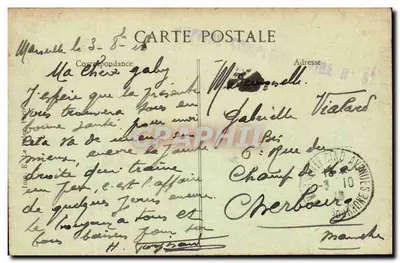 CARTE POSTALE
Correspondance
Adresse
Marseille le 3-8-
Ma chère Gaby
J'espère que la présente
vous trouvera tous en
bonne santé pour moi
cela va de mieux en
mieux, encore la jambe
droite qui traine un
peu, c'est l'affaire
de quelques jours encore
Le bonjour à tous et
bons baisers pour toi
H.
Mademoiselle
Gabrielle Vialard
6 Rue du
Champ de
Cherbourg
Manche
CPAPHIL